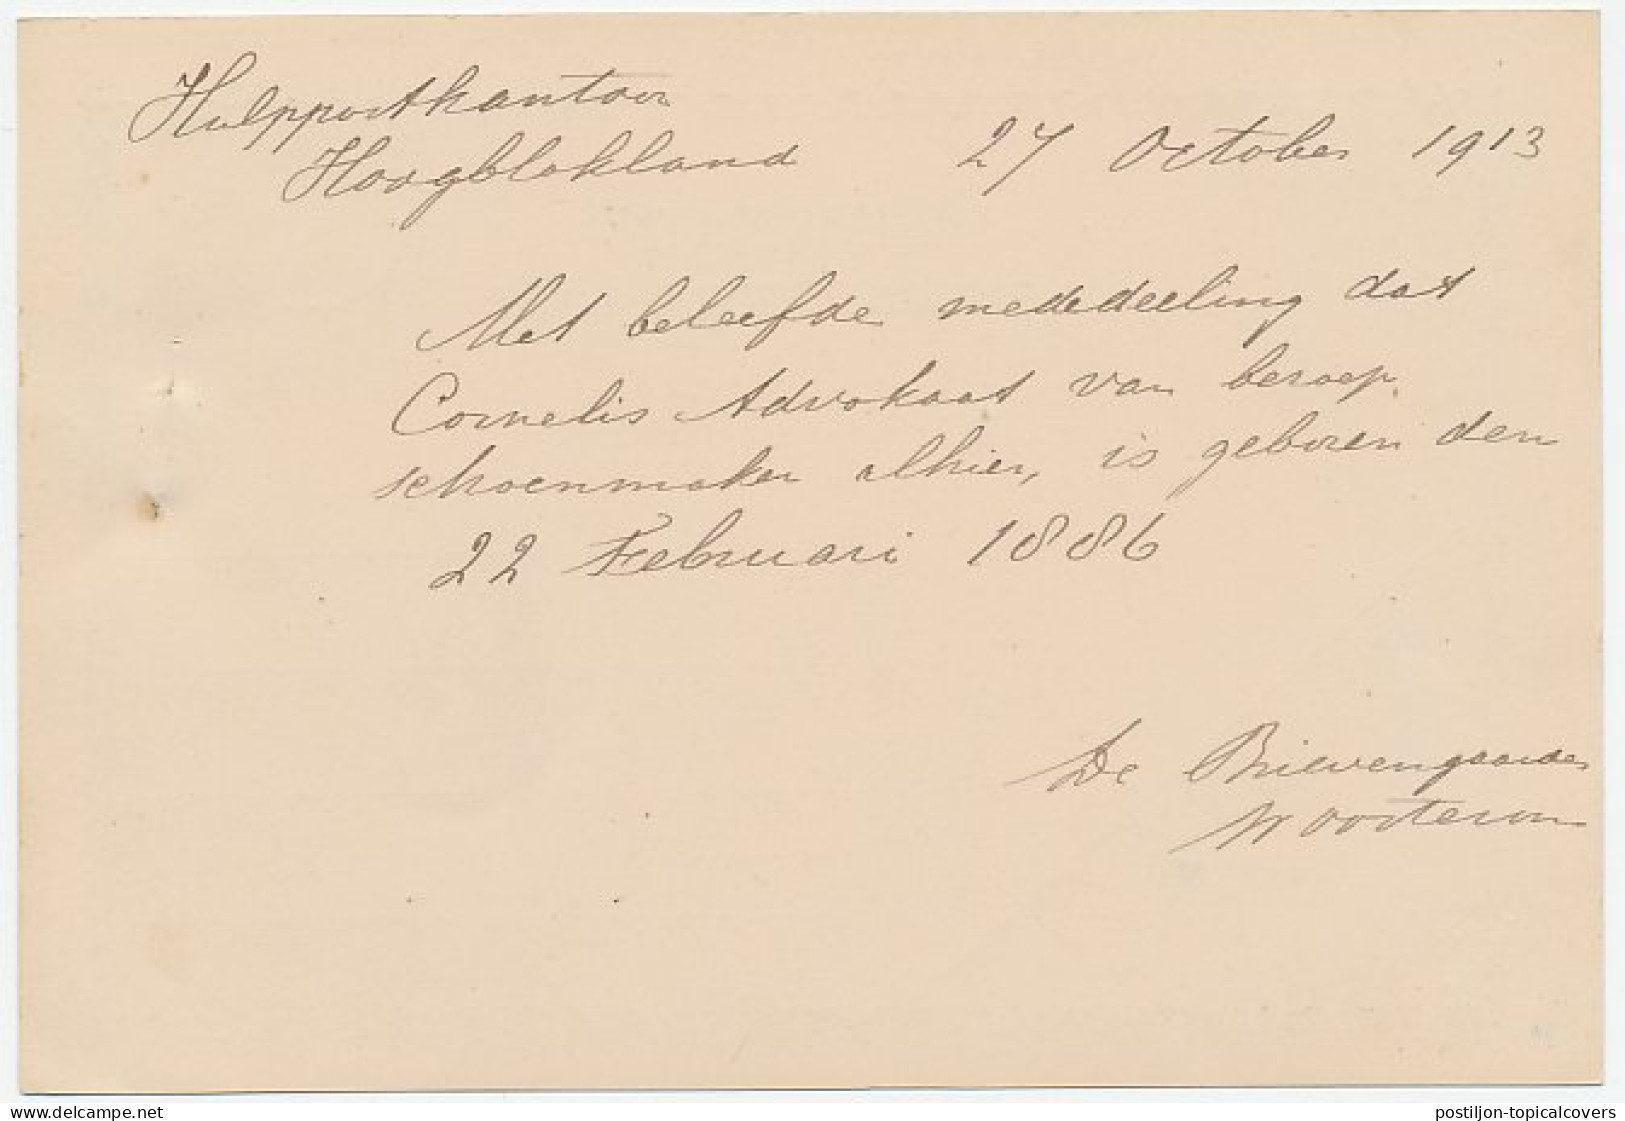 Hulppostkantoor
Hoogblokland 27 October 1913
Met beleefde mededeeling dat
Cornelis Advokaat van beroep
schoenmaker alhier, is geboren den
22 Februari 1886
De Brievengaarder
W Oosterom
delcampe.net
postiljon-topicalcovers